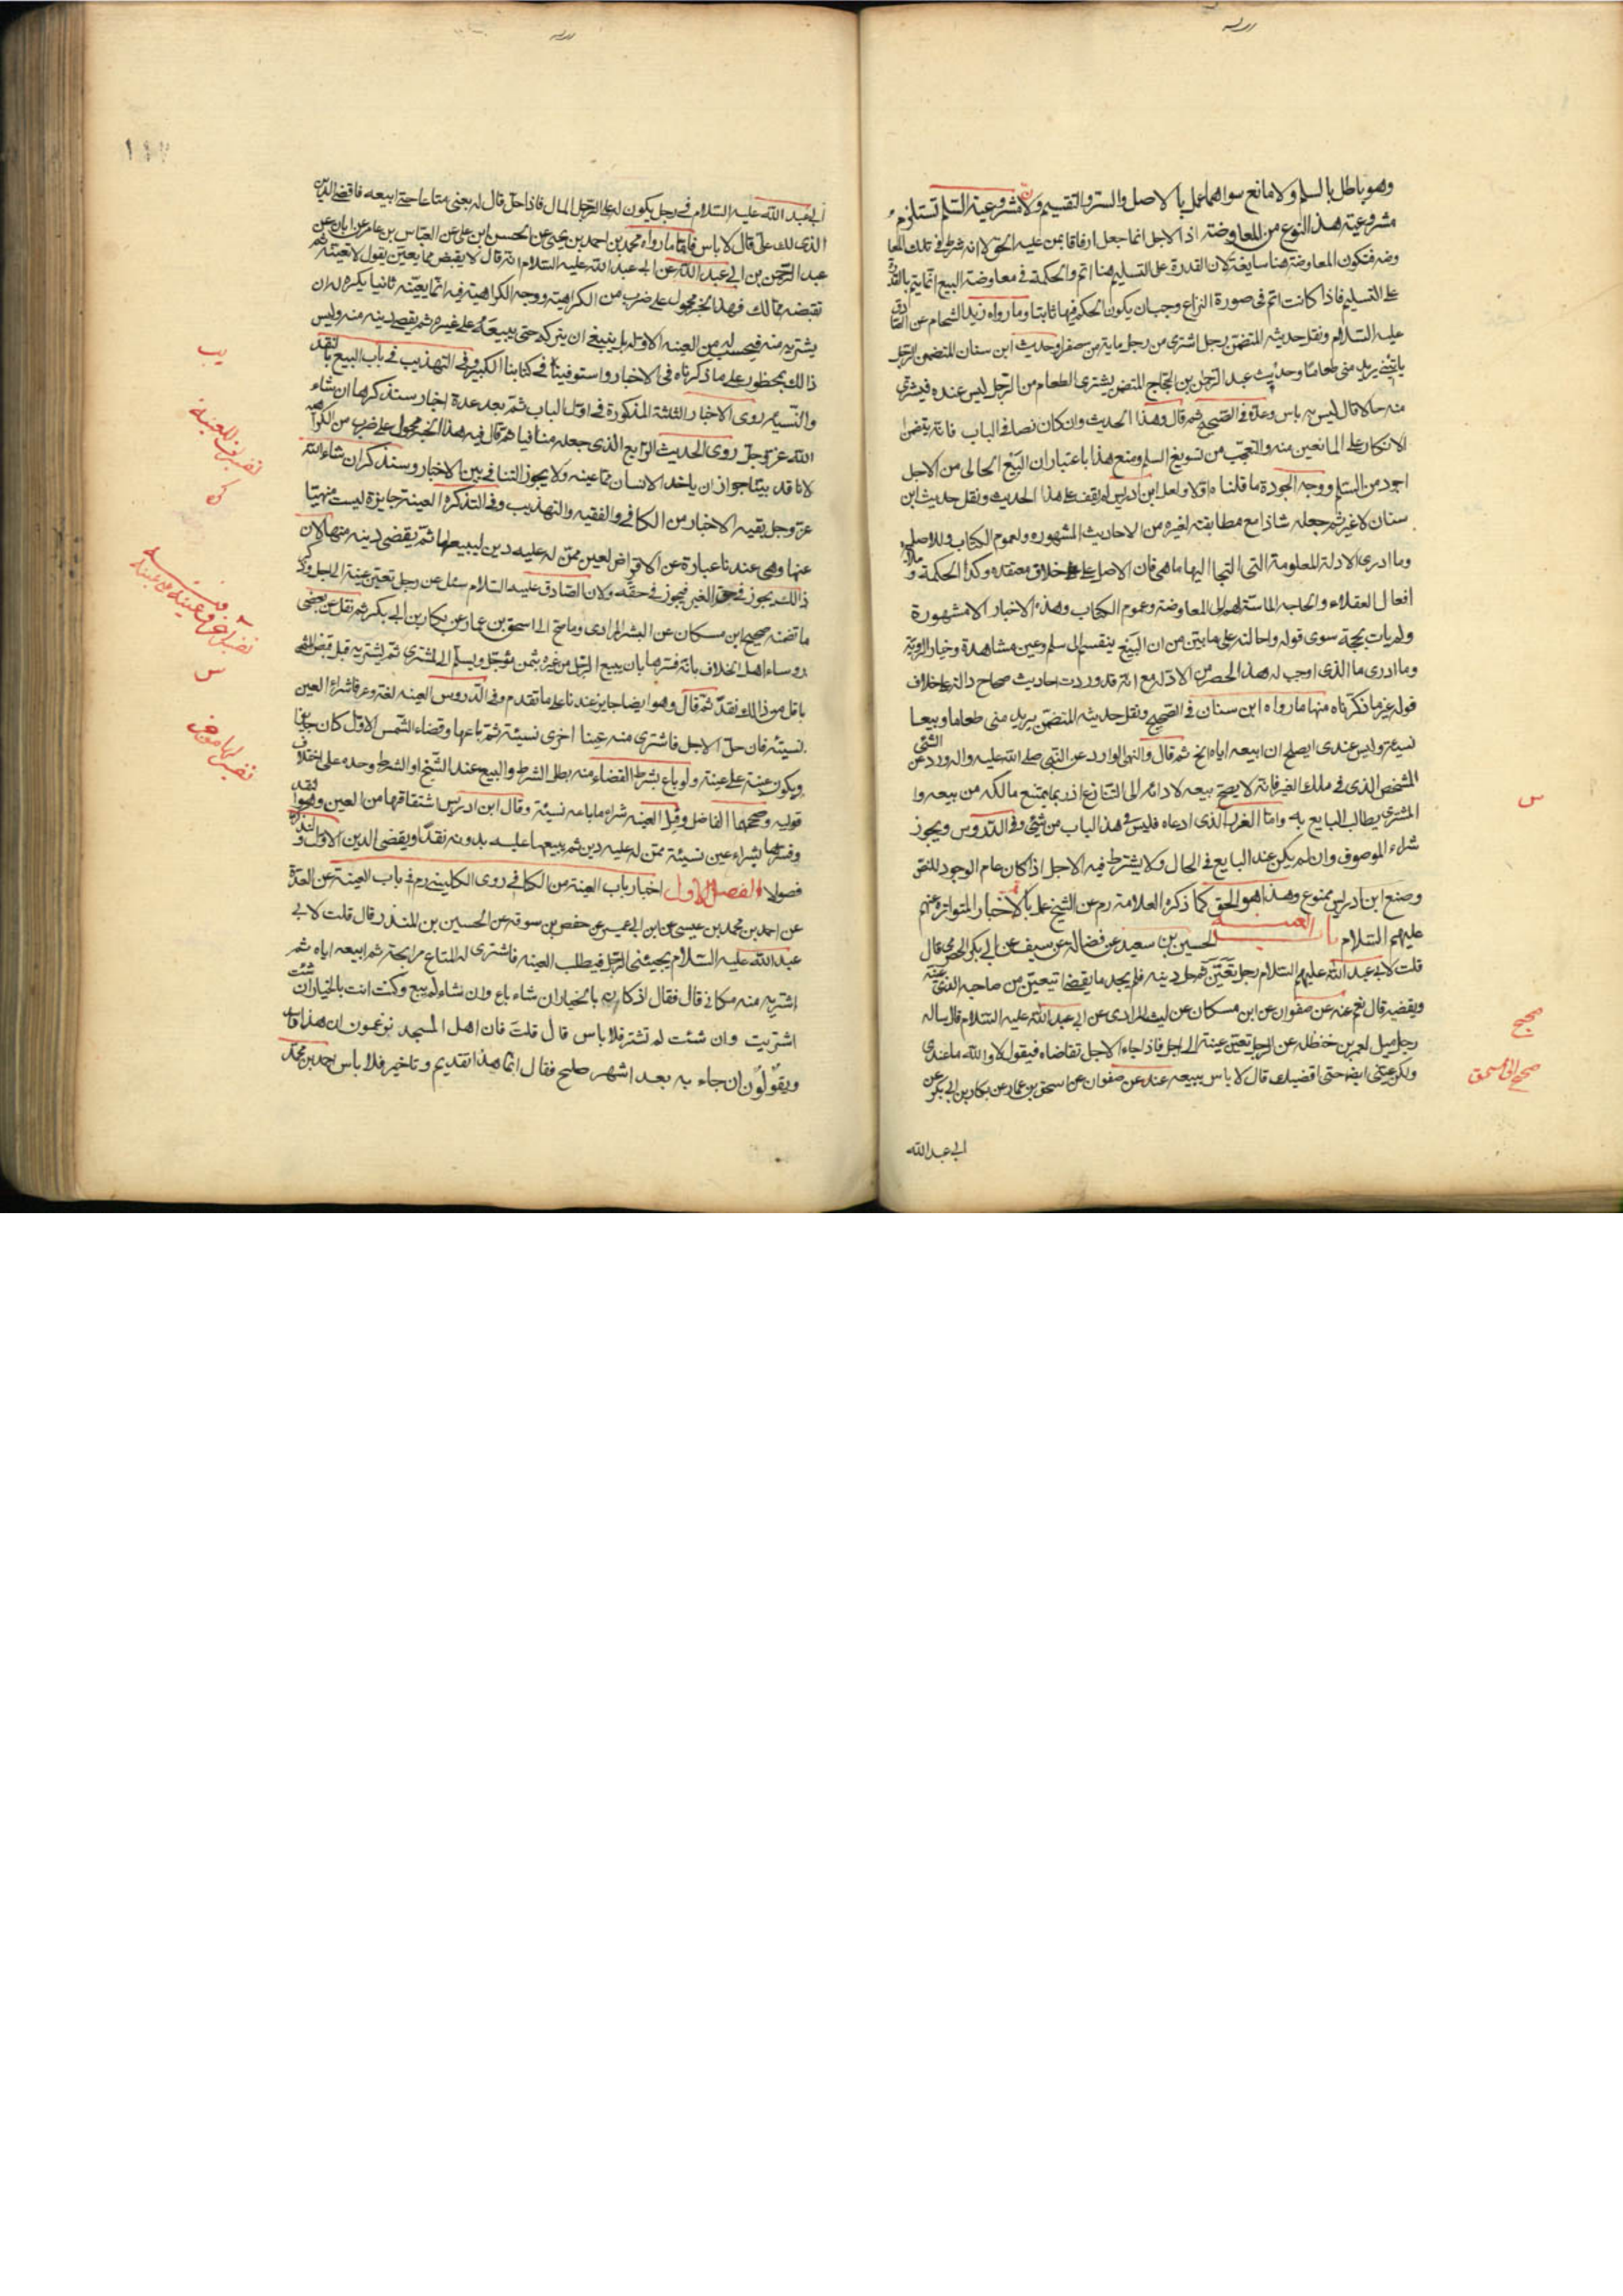 وهو باطل بالسلم ولا مانع سواهما عملا بالاصل والستر والتقسيم ولان مشروعية السلم تستلزم
مشروعية هذا النوع من المعاوضة اذ الاجل انما جعل ارفاقا بمن عليه الحق لا انه شرط في تلك المعا
وضه فتكون المعاوضة هنا سايغة لان القدرة على التسليم هنا اتم والحكمة في معاوضة البيع انما يتم بالقدرة
على التسليم فاذا كانت اتم في صورة النزاع وجب ان يكون الحكم فيها ثابتا وما رواه زيد الشحام عن الصادق
عليه السلام ونقل حديثه المتضمن رجل اشترى من رجل مأية من صفرا وحديث ابن سنان المتضمن الرجل
ياتيني يريد مني طعاما وحديث عبد الرحمن بن الحجاج المتضمن يشترى الطعام من الرجل ليس عنده فيشترى
منه حالا قال ليس به باس وعدّه في الصحيح ثم قال وهذا الحديث وان كان نصا في الباب فانه يتضمن
الانكار على المانعين منه والتعجب من تسويغ السلم ومنع هذا باعتبار ان البيع الحالى من الاجل
اجود من السلم ووجه الجودة ما قلناه اولا ولعل ابن ادريس لم يقف على هذا الحديث ونقل حديث ابن
سنان لا غير ثم جعله شاذا مع مطابقته لغيره من الاحاديث المشهوره ولعموم الكتاب وللاصل
وما ادرى الادلة المعلومة التى التجا اليها ما هى فان الاصل على خلاف معتقده وكذا الحكمة و
افعال العقلاء والحاجة الماسة لهم الى المعاوضة وعموم الكتاب وهذه الاخبار الامشهورة
ولم يات بحجة سوى قوله واحالته على ما بيّن من ان البيع ينقسم الى سلم وعين مشاهدة وخيار الروية
وما ادرى ما الذى اوجب له هذا الحصر من الادلة مع انه قد وردت احاديث صحاح دالة على خلاف
قوله غير ما ذكرناه منها ما رواه ابن سنان في الصحيح ونقل حديثه المتضمن يريد مني طعاما وبيعا
نسيئة وليس عندى ايصلح ان ابيعه اياه الخ ثم قال والنهى الوارد عن النبى صلى الله عليه واله ورد عن الشئ
المشخص الذى في ملك الغير فانه لا يصح بيعه لادائه الى التنازع اذ ربما يمتنع مالكه من بيعه وا
المشترى يطالب البايع به واما الغرر الذى ادعاه فليس في هذا الباب من شئ وفى الدروس ويجوز
شراء الموصوف وان لم يكن عند البايع في الحال ولا يشترط فيه الاجل اذا كان عام الوجود للنص
وصنع ابن ادريس ممنوع وهذا هو الحق كما ذكره العلامة رم عن الشيخ عملا بالاخبار المتواترة عنهم
عليهم السلام باب العينة الحسين بن سعيد عن فضالة عن سيف عن ابى بكر الحضرمى قال
قلت لابى عبد الله عليهم السلام رجل تعيّن ثم حل دينه فلم يجد ما يقضى ايتعين من صاحبه الذى عينه
ويقضيه قال نعم عنه عن صفوان عن ابن مسكان عن ليث المرادى عن ابى عبد الله عليه السلام قال ساله
رجل زميل لعمر بن حنظله عن الرجل تعيّن عينة الى اجل فاذا جاء الاجل تقاضاه فيقول لا والله ما عندى
ولكن عينى ايضا حتى اقضيك قال لا باس ببيعه عنه عن صفوان عن اسحق بن عمار عن بكار بن ابى بكر عن
ابى عبد الله
س
صحيح
صحيح الى اسحق
ابى عبد الله عليه السلام في رجل يكون له على الرجل المال فاذا حل قال له بعنى متاعا حتى ابيعه فاقضى الدين
الذى لك علىّ قال لا باس فاما ما رواه محمد بن احمد بن يحيى عن الحسن ابن على عن العباس بن عامر عن ابان عن
عبد الرحمن بن ابى عبد الله عن ابى عبد الله عليه السلام انه قال لا يقبض مما يعين يقول لا تعينه ثم
تقبضه مما لك فهذا الخبر محمول على ضرب من الكراهية ووجه الكراهية فيه انما يعينه ثانيا يكره له ان
يشتريه منه فيحسب له من العينه الاوله بل ينبغى ان يتركه حتى يبيعه على غيره ثم يقضى دينه منه وليس
ذالك بمحظور على ما ذكرناه في الاخبار واستوفيناه في كتابنا الكبير وفى التهذيب في باب البيع بالنقد
والنسية روى الاخبار الثلثة المذكورة في اول الباب ثم بعد عدة اخبار سنذكرها ان شاء
الله عز وجل روى الحديث الرابع الذى جعله منافيا ثم قال فيه هذا الخبر محمول على ضرب من الكراهية
لانا قد بينا جواز ان ياخذ الانسان مما عينه ولا يجوز التنافى بين الاخبار وسنذكر ان شاء الله
عز وجل بقيه الاخبار من الكافى والفقيه والتهذيب وفى التذكره العينة جايزة ليست منهيا
عنها وهى عندنا عبارة عن الاقراض لعين ممن له عليه دين ليبيعها ثم يقضى دينه منها لان
ذالك يجوز في حق الغير فيجوز في حقه ولان الصادق عليه السلام سئل عن رجل تعين عينة الى اجل وذكر
ما تضمنه صحيح ابن مسكان عن البشر المرادى وما صح الى اسحق بن عمار عن بكار بن ابى بكر ثم نقل عن بعض
روساء اهل الخلاف بانه فسرها بان يبيع الرجل من غيره بثمن مؤجل ويسلم الى المشترى ثم يشتريه قبل قبض الثمن
باقل من ذالك نقدا ثم قال وهو ايضا جايز عندنا على ما تقدم وفى الدروس العينه لغة وعرفا شراء العين
نسيئة فان حل الاجل فاشترى منه عينا اخرى نسيئة ثم باعها وقضاه الثمن الاول كان جايزا
ويكون عينة على عينة ولو باع بشرط القضاء منه بطل الشرط والبيع عند الشيخ او الشرط وحده على اختلاف
قوليه وصححهما الفاضل وقيل العينه شراء ما باعه نسيئة وقال ابن ادريس اشتقاقها من العين وهو النقد
وفسرها بشراء عين نسيئة ممن له عليه دين ثم يبيعها عليه بدونه نقدا ويقضى الدين الاول و
فصولا الفصل الاول اخبار باب العينة من الكافى روى الكلينى رم في باب العينة عن العدة
عن احمد بن محمد بن عيسى عن ابن ابى عمير عن حفص بن سوقه عن الحسين بن المنذر قال قلت لابى
عبد الله عليه السلام يجيئنى الرجل فيطلب العينه فاشترى له المتاع مرابحة ثم ابيعه اياه ثم
اشتريه منه مكانى قال فقال اذ كان بالخيار ان شاء باع وان شاء لم يبع وكنت انت بالخيار ان شئت
اشتريت وان شئت لم تشتر فلا باس قال قلت فان اهل المسجد يزعمون ان هذا فاسد
ويقولون ان جاء به بعد اشهر صلح فقال انما هذا تقديم وتاخير فلا باس احمد بن محمد
يب
تفسير للعينة
كى
س